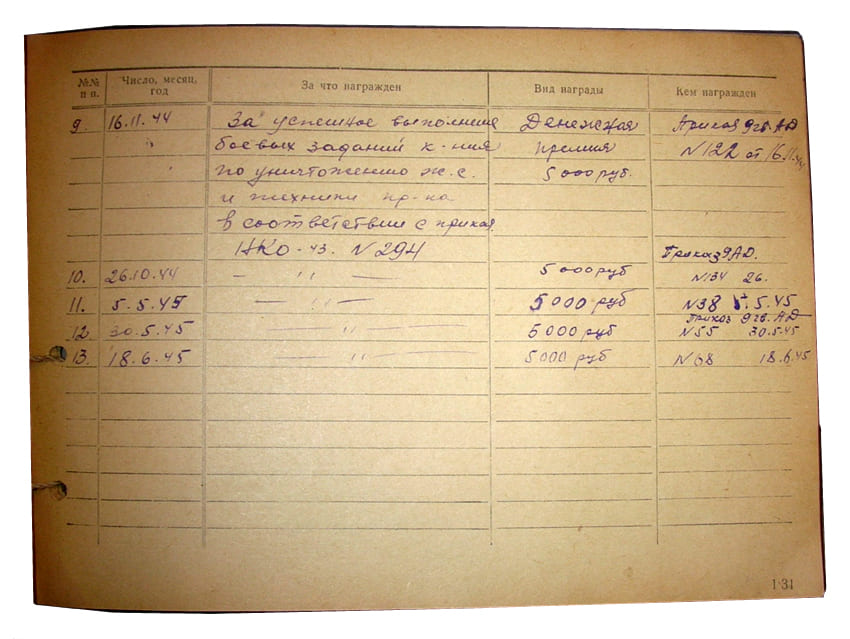 №№ п п. Число, месяц, год За что награжден Вид награды Кем награжден
9. 16.11.44 За успешное выполнение Денежная Приказ 9 гв. АД
боевых заданий к-ния премия N122 от 16.11.44
по уничтожению ж.с. 5000 руб.
и техники пр-ка
в соответствии с приказ.
НКО-43. N294
Приказ 9АД.
10. 26.10.44 — " — 5000 руб N134 26.
11. 5.5.45 — " — 5000 руб N38 5.5.45
Приказ 9 гв. АД
12. 30.5.45 — " — 5000 руб N55 30.5.45
13. 18.6.45 — " — 5000 руб N68 18.6.45
131